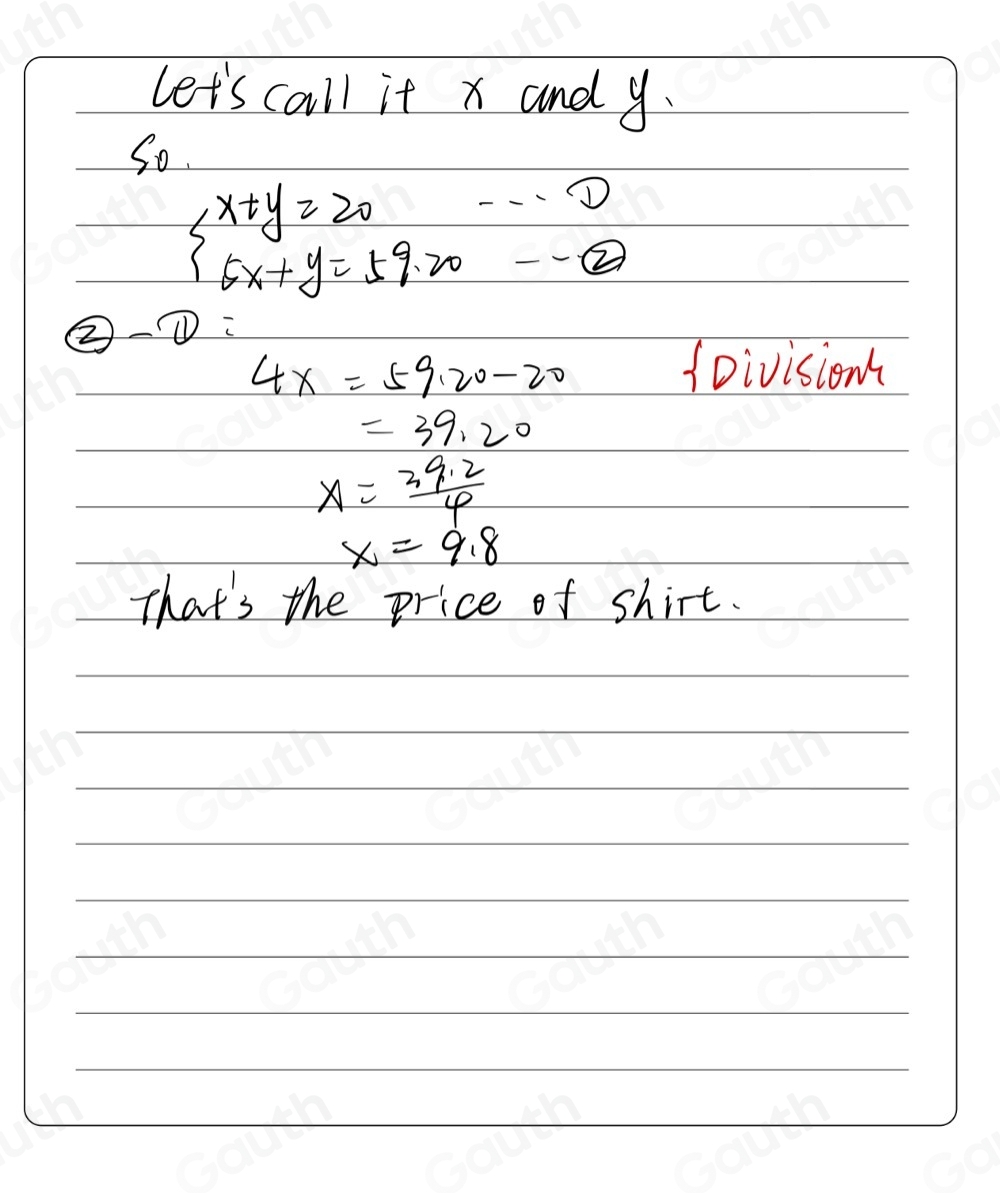 Let's call it x and y.
So.
{ x+y=20 ---- ①
5x+y=59.20 --- ②
② - ① :
4x = 59.20-20 {Division}
= 39.20
x = 39.2/4
x = 9.8
That's the price of shirt.
Gauth